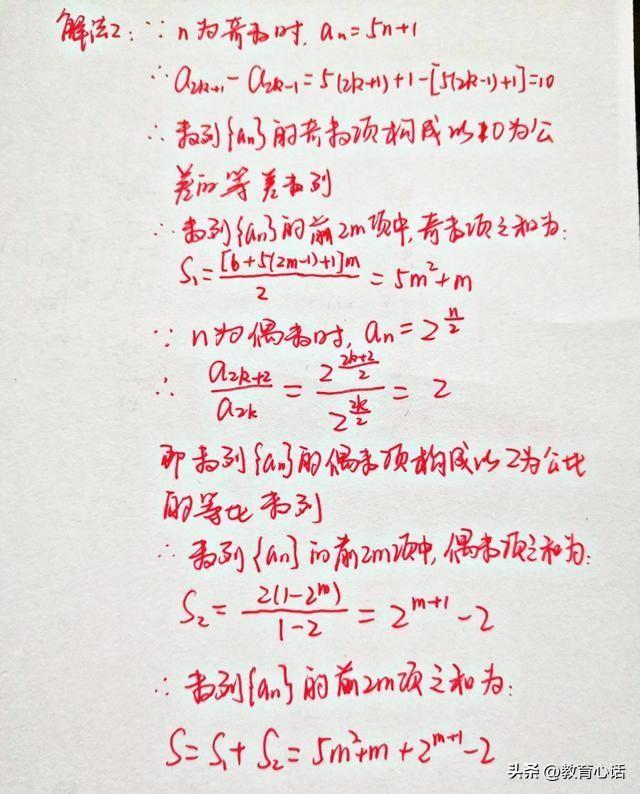 解法2: ∵ n为奇数时, aₙ=5n+1
∴ a₂ₖ₊₁-a₂ₖ₋₁=5(2k+1)+1-[5(2k-1)+1]=10
∴ 数列{aₙ}的奇数项构成以10为公
差的等差数列
∴ 数列{aₙ}的前2m项中,奇数项之和为:
S₁=\frac{[6+5(2m-1)+1]m}{2}=5m²+m
∵ n为偶数时, aₙ=2^{\frac{n}{2}}
∴ \frac{a_{2k+2}}{a_{2k}}=\frac{2^{\frac{2k+2}{2}}}{2^{\frac{2k}{2}}}=2
即数列{aₙ}的偶数项构成以2为公比
的等比数列
∴ 数列{aₙ}的前2m项中,偶数项之和为:
S₂=\frac{2(1-2^m)}{1-2}=2^{m+1}-2
∴ 数列{aₙ}的前2m项之和为:
S=S₁+S₂=5m²+m+2^{m+1}-2
头条 @教育心话